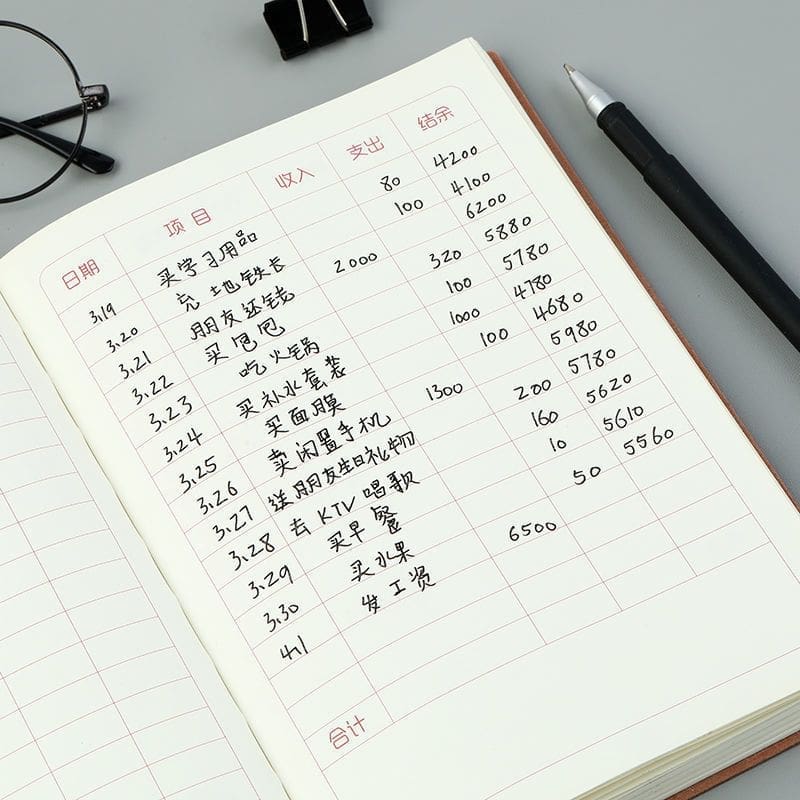 日期 项目 收入 支出 结余
3.19 买学习用品 80 4200
3.20 充地铁卡 100 4100
3.21 朋友还钱 2000 6200
3.22 买包包 320 5880
3.23 吃火锅 100 5780
3.24 买补水套装 1000 4780
3.25 买面膜 100 4680
3.26 卖闲置手机 1300 5980
3.27 送朋友生日礼物 200 5780
3.28 去KTV唱歌 160 5620
3.29 买早餐 10 5610
3.30 买水果 50 5560
4.1 发工资 6500
合计